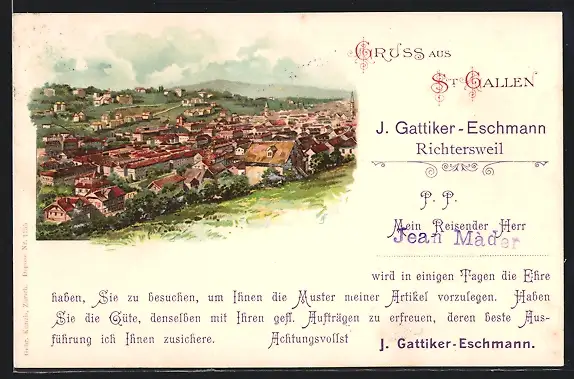 Gruss aus
St Gallen
J. Gattiker-Eschmann
Richtersweil
P. P.
Mein Reisender Herr
Jean Mäder
wird in einigen Tagen die Ehre
haben, Sie zu besuchen, um Ihnen die Muster meiner Artikel vorzulegen. Haben
Sie die Güte, denselben mit Ihren gefl. Aufträgen zu erfreuen, deren beste Aus-
führung ich Ihnen zusichere. Achtungsvollst
J. Gattiker-Eschmann.